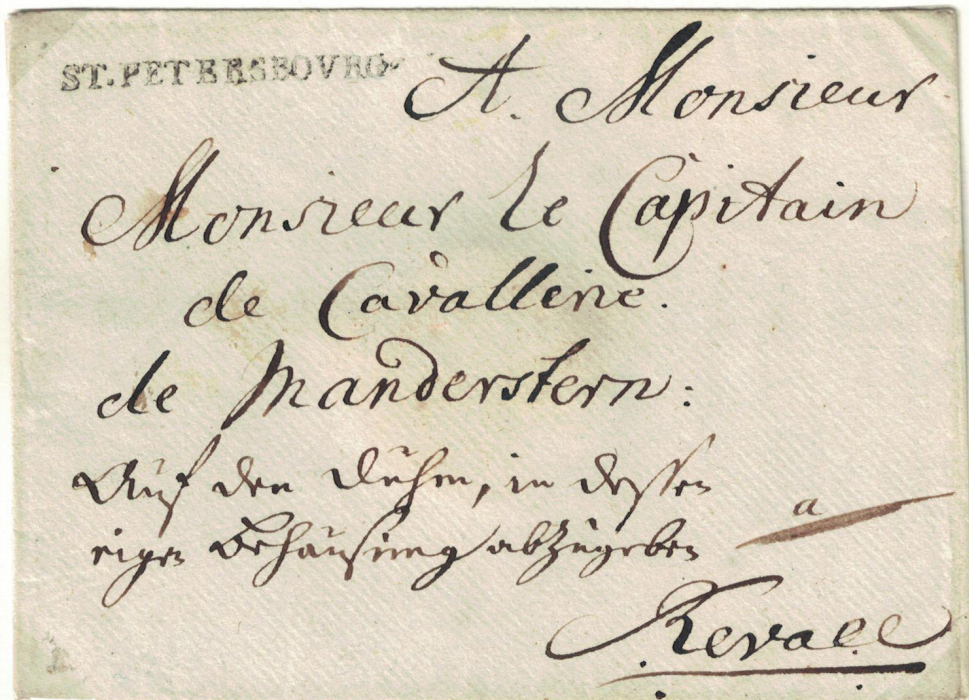 ST.PETERSBOVRG
A. Monsieur
Monsieur Le Capitain
de Cavallerie.
de Manderstern:
Auf den Duhm, in dessen
eigen Behausung abzugeben
a
Revall